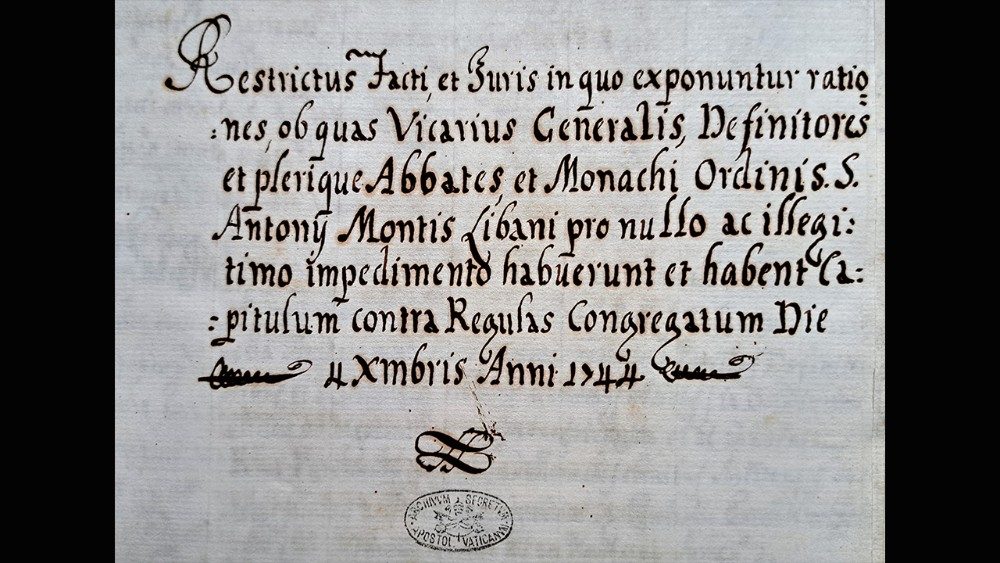 Restrictus Facti, et Juris in quo exponuntur ratio=
:nes, ob quas Vicarius Generalis, Definitores
et plerique Abbates, et Monachi Ordinis. S.
Antonÿ Montis Libani pro nullo ac illegi:
timo impedimento habuerunt et habent Ca:
:pitulum contra Regulas Congregatum Die
4 Xmbris Anni 1744
ARCHIVVM SECRETVM
APOSTOL. VATICANVM